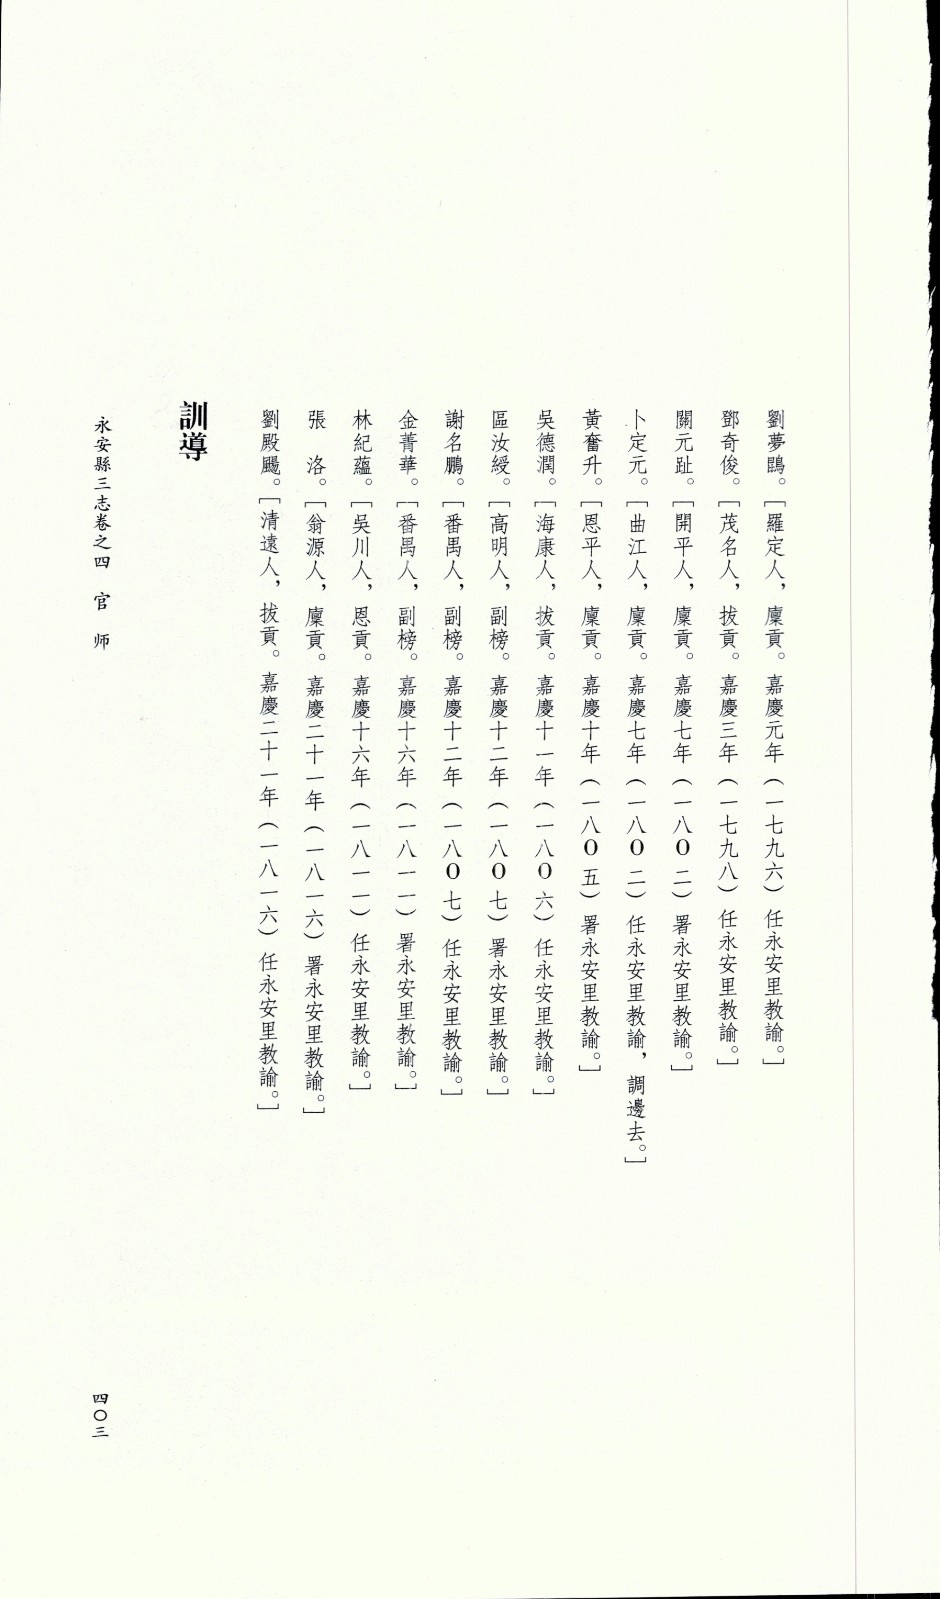 劉夢鵾。［羅定人，廩貢。嘉慶元年（一七九六）任永安里教諭。］
鄧奇俊。［茂名人，拔貢。嘉慶三年（一七九八）任永安里教諭。］
關元趾。［開平人，廩貢。嘉慶七年（一八〇二）署永安里教諭。］
卜定元。［曲江人，廩貢。嘉慶七年（一八〇二）任永安里教諭，調邊去。］
黃奮升。［恩平人，廩貢。嘉慶十年（一八〇五）署永安里教諭。］
吳德潤。［海康人，拔貢。嘉慶十一年（一八〇六）任永安里教諭。］
區汝綬。［高明人，副榜。嘉慶十二年（一八〇七）署永安里教諭。］
謝名鵬。［番禺人，副榜。嘉慶十二年（一八〇七）任永安里教諭。］
金菁華。［番禺人，副榜。嘉慶十六年（一八一一）署永安里教諭。］
林紀蘊。［吳川人，恩貢。嘉慶十六年（一八一一）任永安里教諭。］
張　洛。［翁源人，廩貢。嘉慶二十一年（一八一六）署永安里教諭。］
劉殿颺。［清遠人，拔貢。嘉慶二十一年（一八一六）任永安里教諭。］
訓導
永安縣三志卷之四　官　师
四〇三